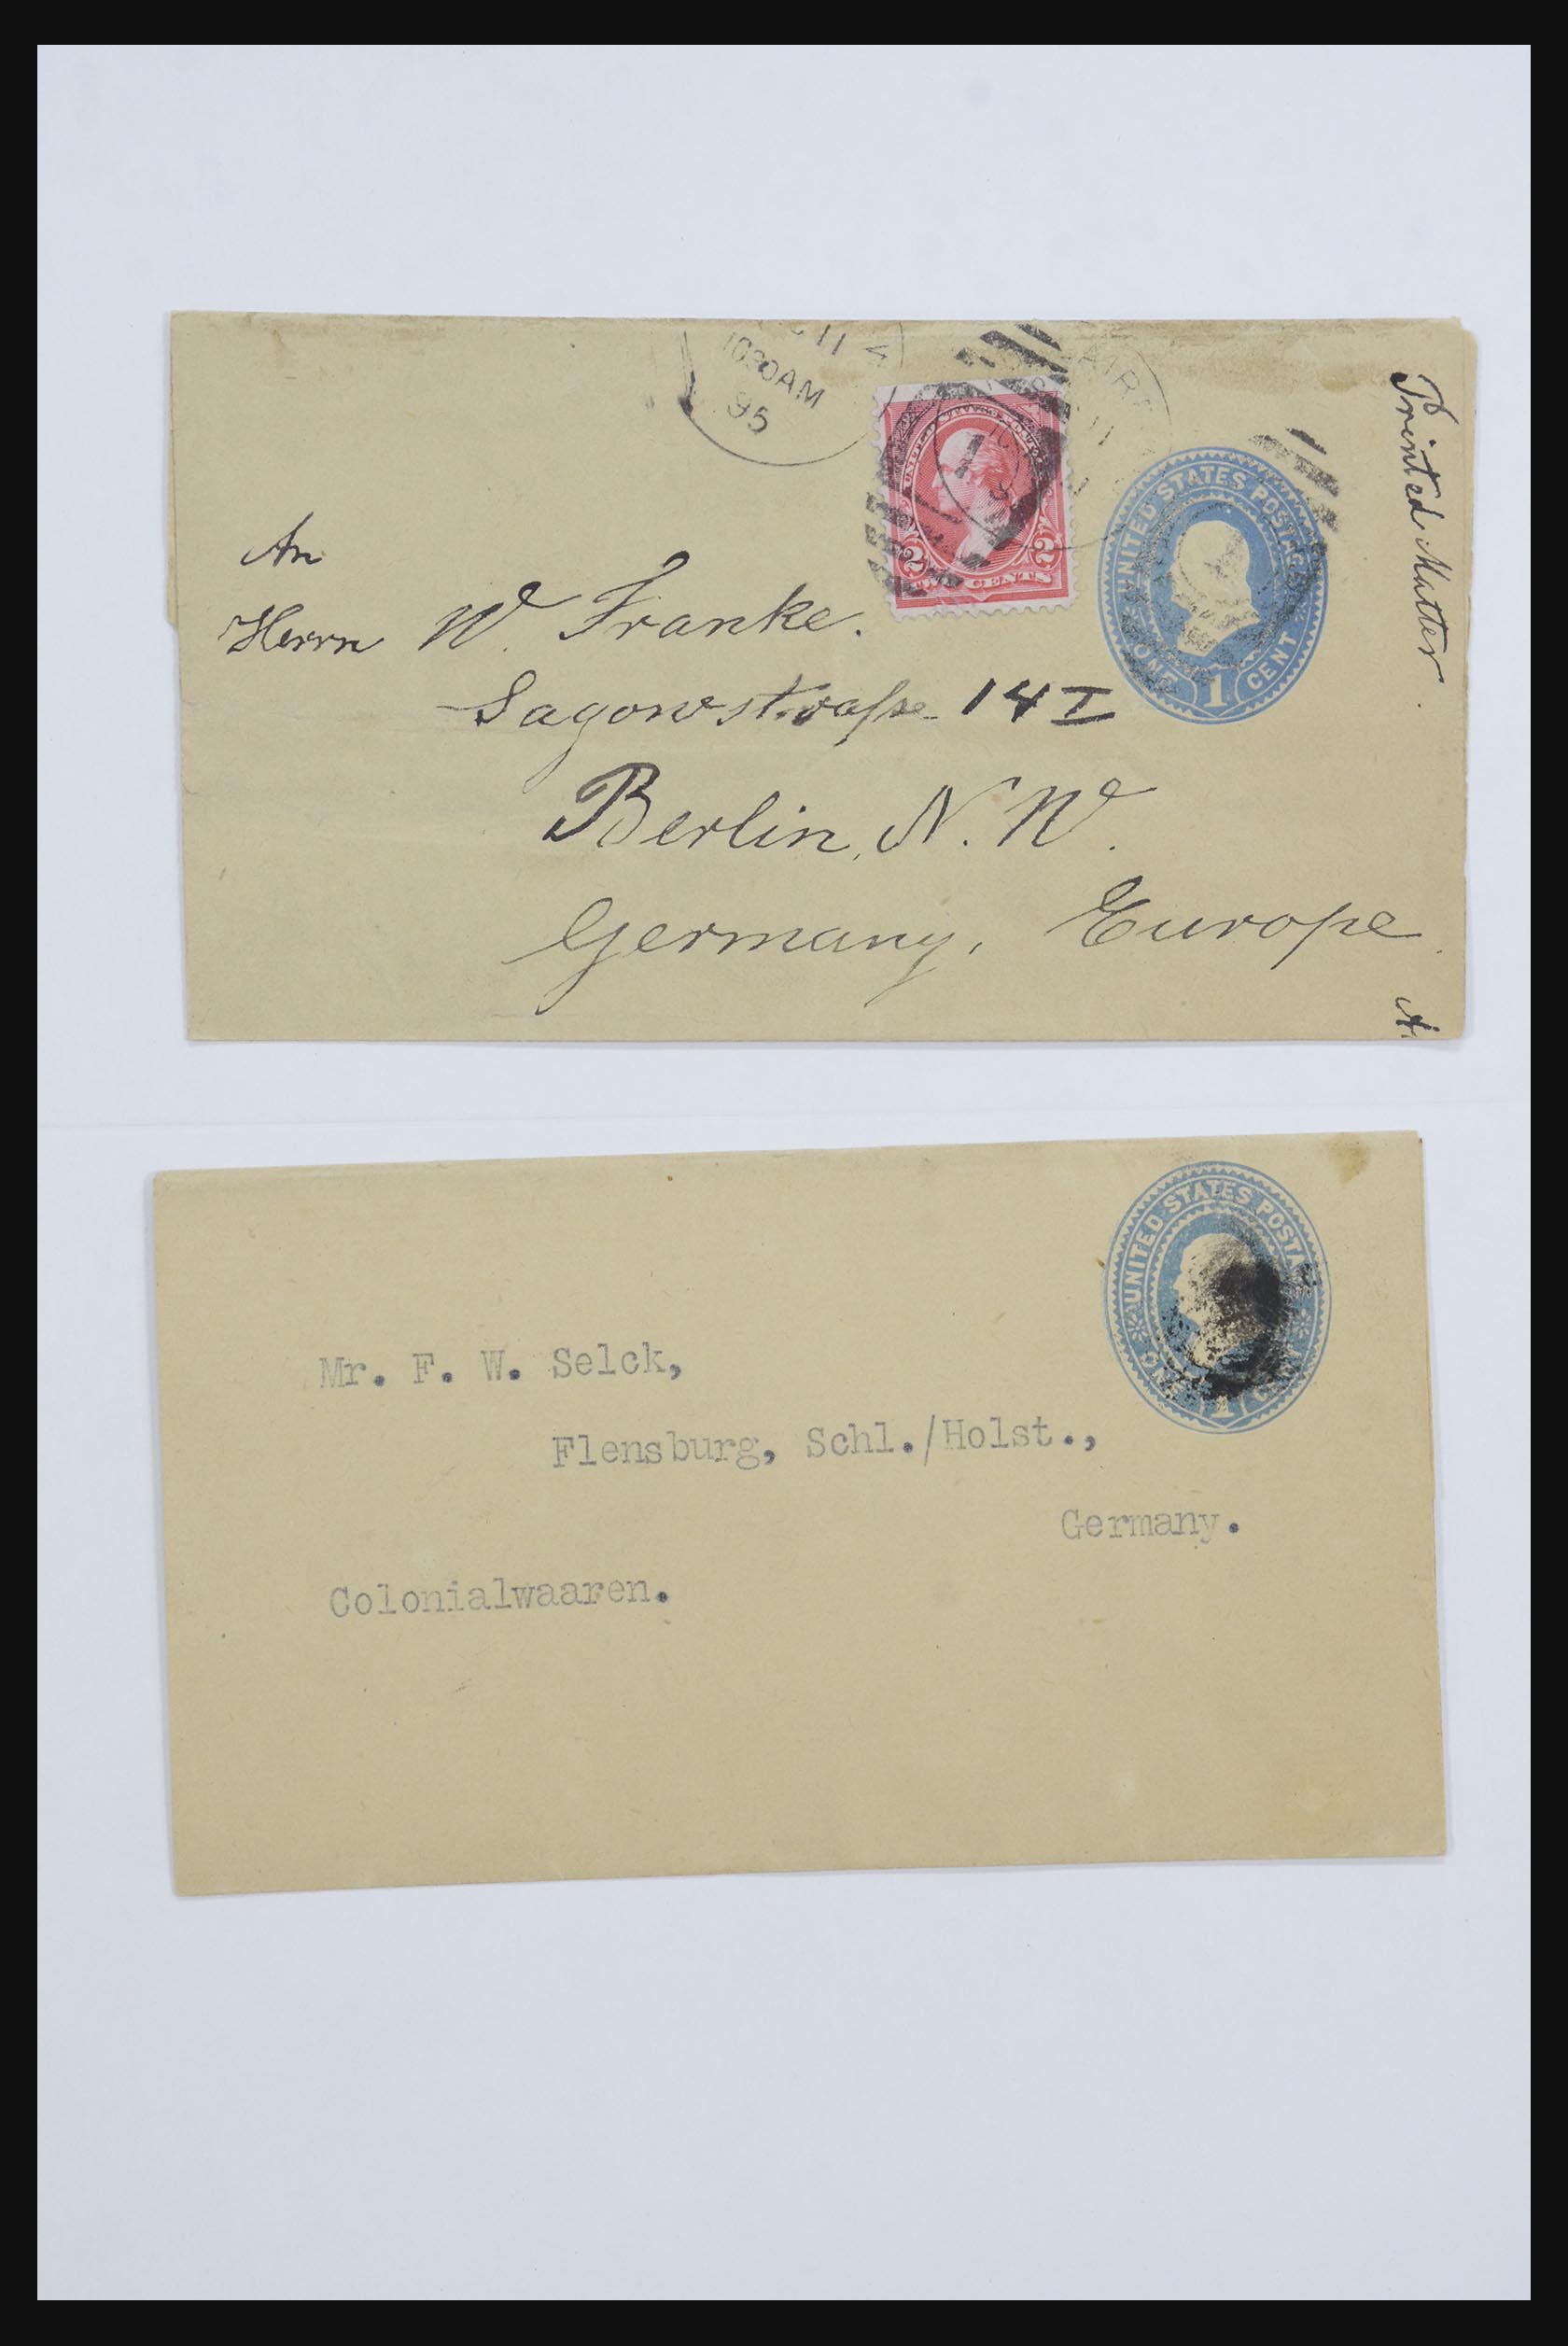 11
1030AM
95
11
UNITED STATES POSTAGE
ONE 1 CENT
2 TWO CENTS 2
Printed Matter.
An
Herrn W. Franke.
Sagowstraße 14 I
Berlin, N. W.
Germany, Europe.
UNITED STATES POSTAGE
ONE 1 CENT
Mr. F. W. Selck,
Flensburg, Schl./Holst.,
Germany.
Colonialwaaren.